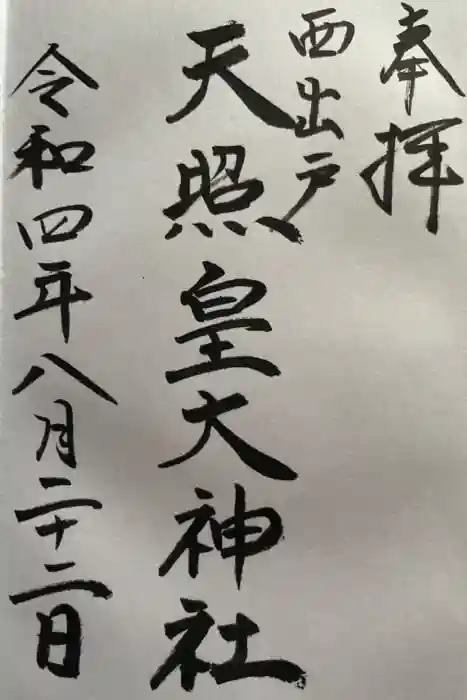 奉拝
西出戸
天照皇大神社
令和四年八月二十二日